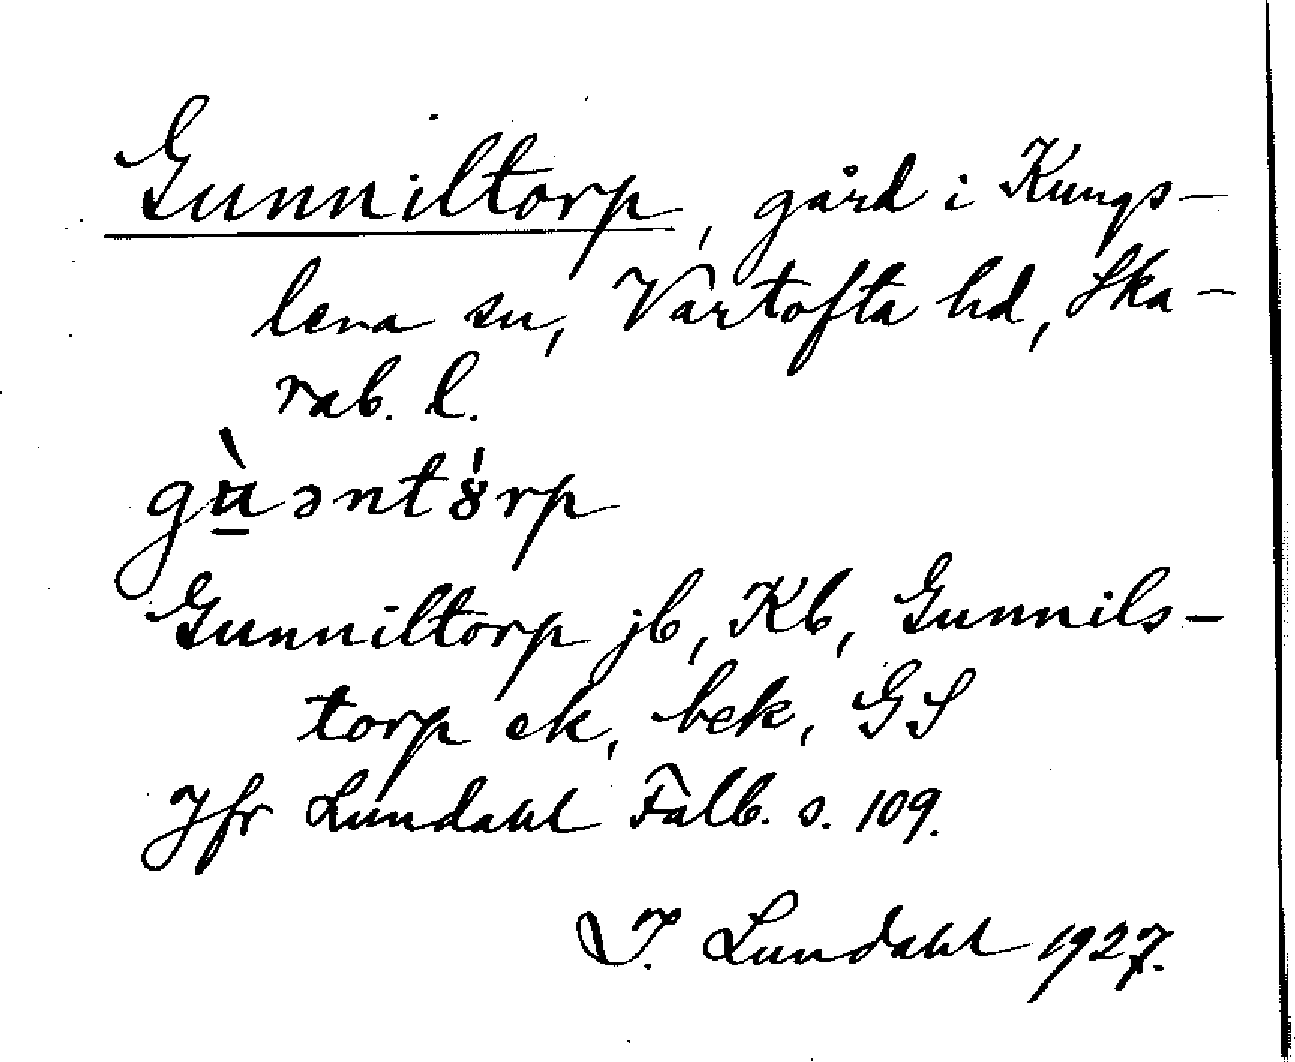 Gunniltorp, gård i Kungs-
lena sn, Vartofta hd, Ska-
rab. l.
gù̲əntȣ́rp
Gunniltorp jb, Kb, Gunnils-
torp ek, bek, GS
Jfr Lundahl Falb. s. 109.
I. Lundahl 1927.